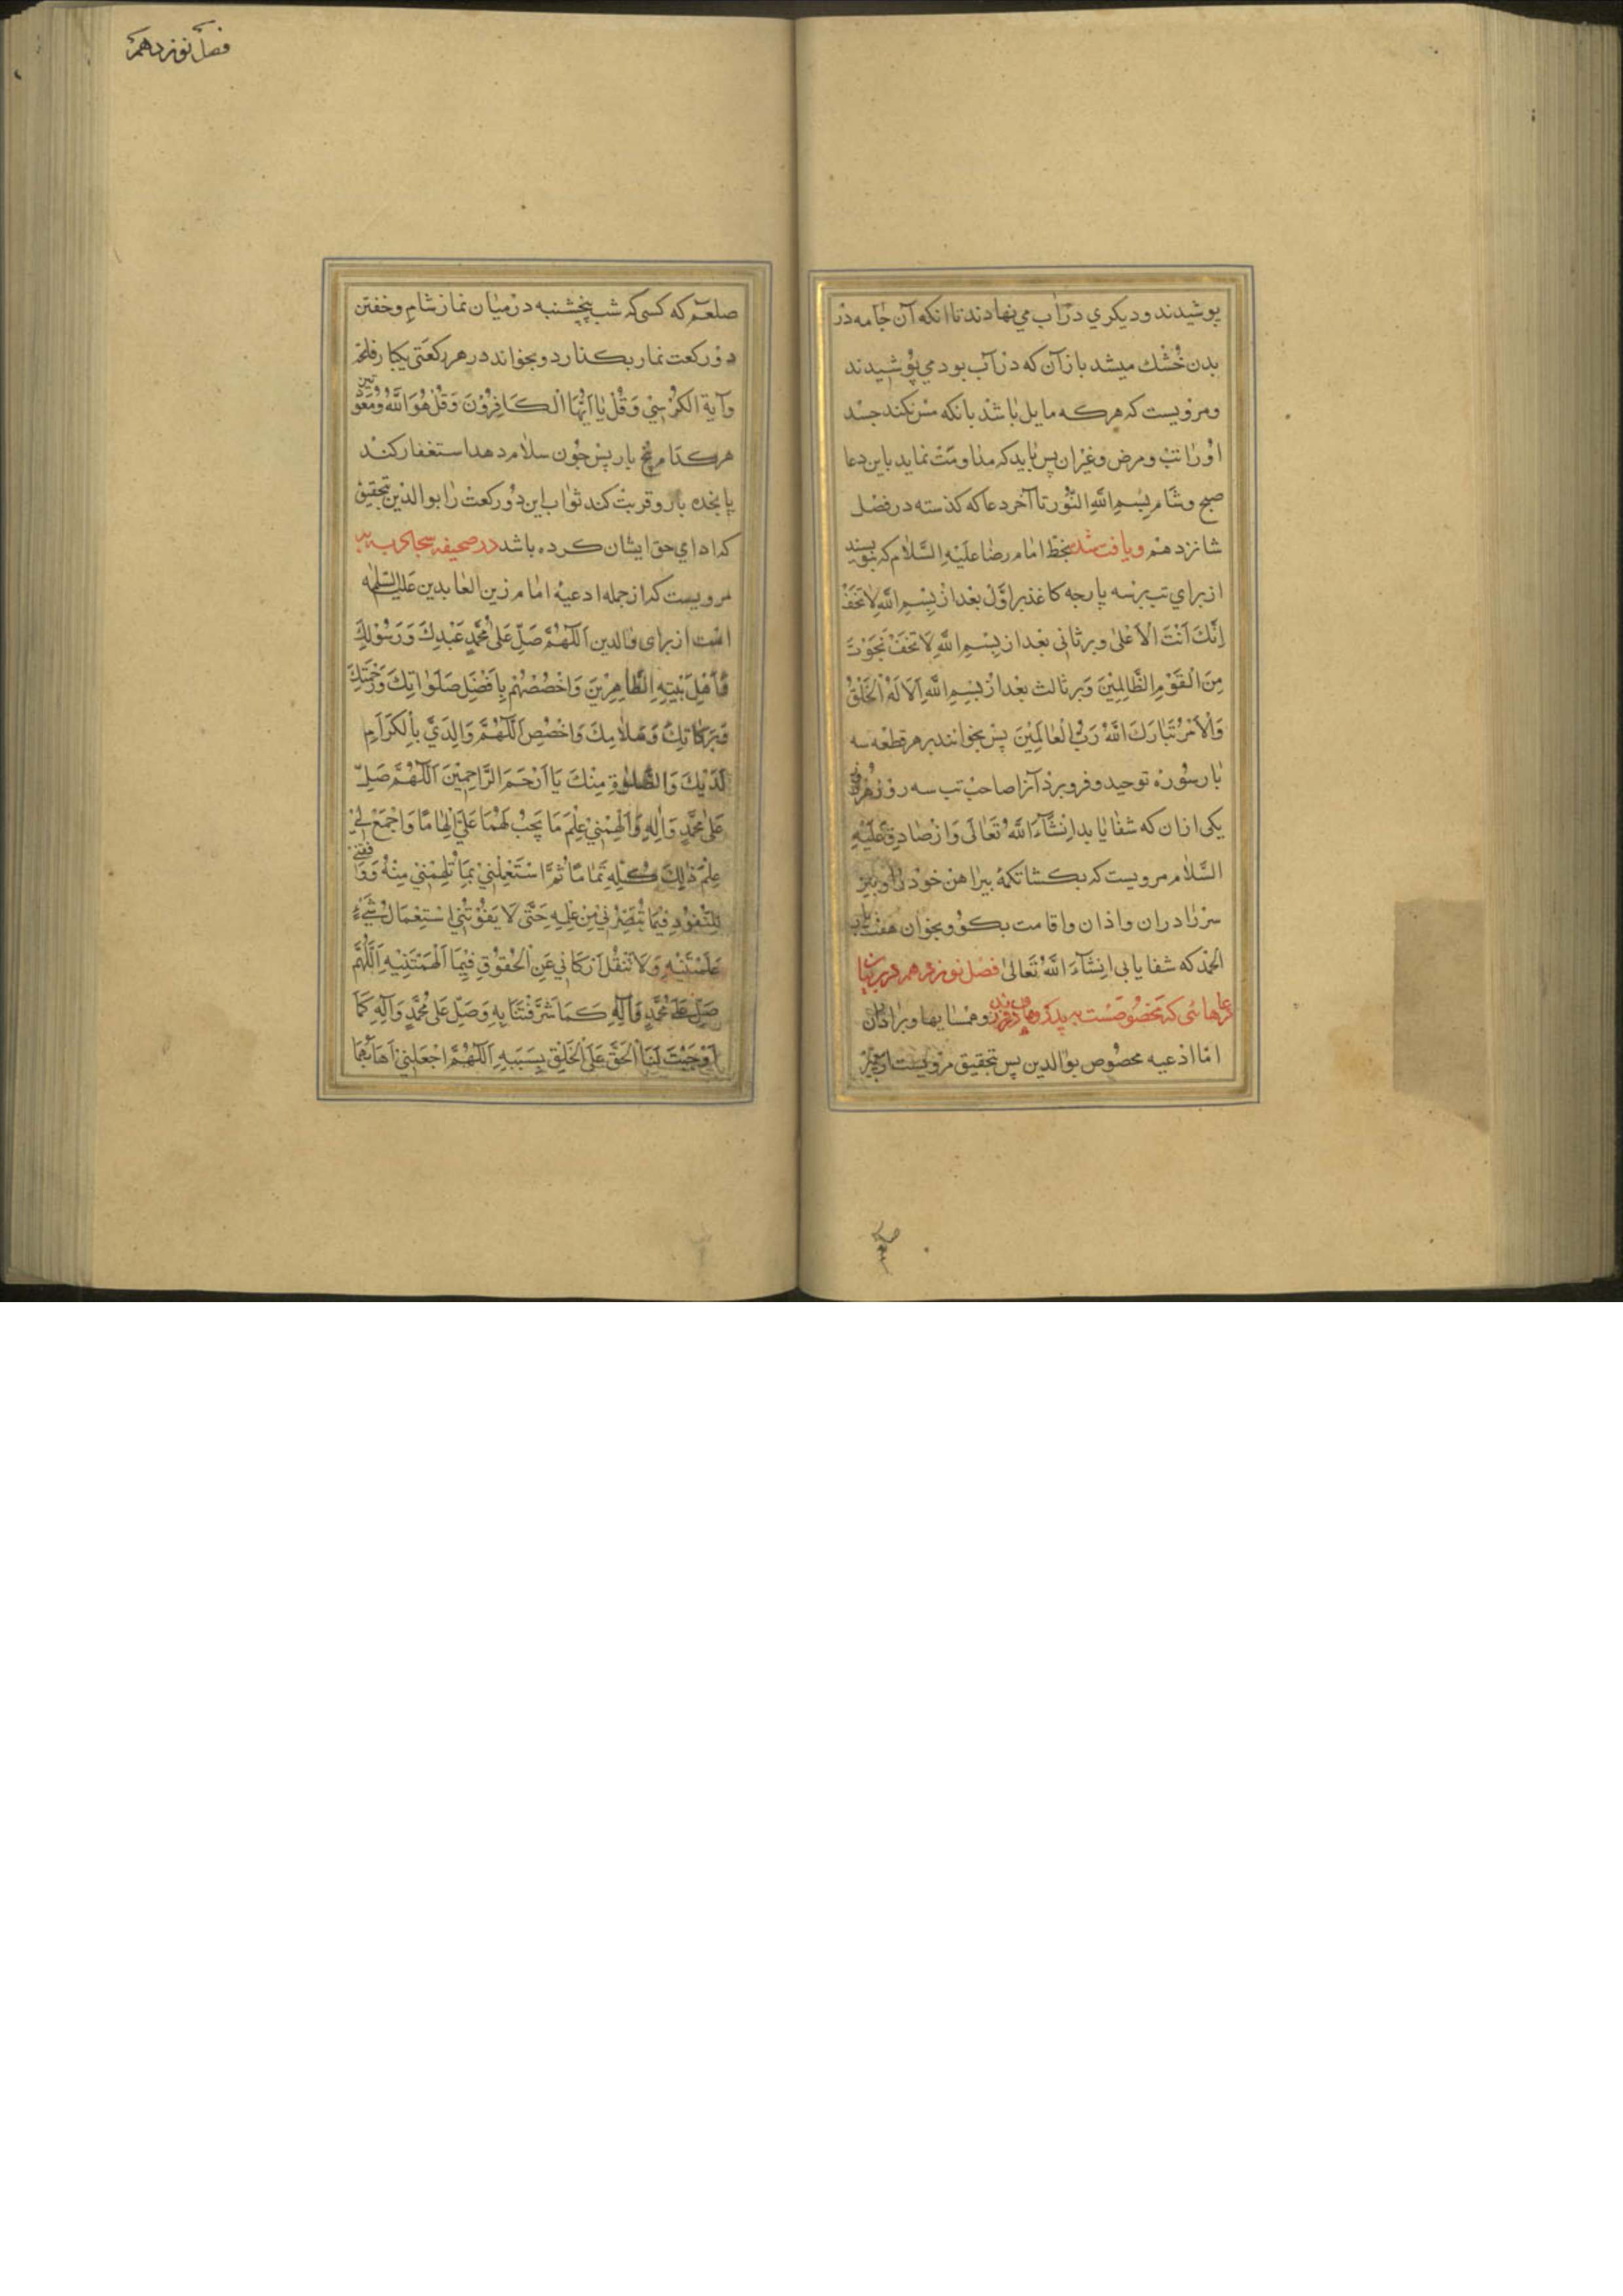 پوشیدند و دیکري دراب مي نهادند تا انکه آن جامه در
بدن خشك میشد باز آن که در آب بود مي پوشیدند
ومرویست که هرکه مایل باشد بانکه مس نکند جسد
او را تب ومرض وغیر ان پس باید که مداومت نماید باین دعا
صبح وشام بِسْمِ اللّٰهِ النُّور تا آخر دعا که کذسته در فصل
شانزدهم ویافت شد بخط امام رضا علیه السلام که بنویسند
از براي تب بر سه پارچه کاغذ بر اول بعد از بِسْمِ اللّٰهِ لَا تَخَفْ
اِنَّكَ اَنْتَ الْاَعْلٰی وبر ثانی بعد از بِسْمِ اللّٰهِ لَا تَخَفْ نَجَوْتَ
مِنَ الْقَوْمِ الظَّالِمِیْنَ وبر ثالث بعد از بِسْمِ اللّٰهِ اَلَا لَهُ الْخَلْقُ
وَالْاَمْرُ تَبَارَكَ اللّٰهُ رَبُّ الْعَالَمِیْنَ پس بخوانند بر هر قطعه سه
بار سوره توحید و فرو برد آنرا صاحب تب سه روز هر روزی
یکی ازان که شفا یابد اِنْشَآءَ اللّٰهُ تَعَالٰی وَاز صادق عَلَیْهِ
السَّلام مرویست که بکشا تکمۀ پیراهن خود را و ببر
سر را دران واذان واقامت بکو و بخوان هفت بار
الحمد که شفا یابی اِنْشَآءَ اللّٰهُ تَعَالٰی فصل نوزدهم در بیان
دعاهائی که مخصوصست به پدر ومادر وفرزندان و همسایها و برادران
امّا ادعیه مخصوص بوالدین پس بتحقیق مرویست از پیغمبر
فصل نوزدهم
صلعم که کسی که شب پنجشنبه در میان نماز شام وخفتن
دو رکعت نماز بکذارد و بخواند در هر رکعتی یکبار فاتحه
وآیة الکرسي وَقُلْ یَا اَیُّهَا الْکَافِرُوْنَ وَقُلْ هُوَ اللّٰهُ ومعوذتین
هرکدام پنج بار پس چون سلام دهد استغفار کند
پانجده بار و قربت کند ثواب این دو رکعت را بوالدین بتحقیق
که اداي حق ایشان کرده باشد در صحیفه سجادیه
مرویست که از جمله ادعیه امام زین العابدین علیه السلام
است از برای والدین اَللّٰهُمَّ صَلِّ عَلٰی مُحَمَّدٍ عَبْدِكَ وَرَسُوْلِكَ
وَاَهْلِ بَیْتِهِ الطَّاهِرِیْنَ وَاخْصُصْهُمْ بِاَفْضَلِ صَلَوَاتِكَ وَرَحْمَتِكَ
وَبَرَکَاتِكَ وَسَلَامِكَ وَاخْصُصِ اللّٰهُمَّ وَالِدَيَّ بِالْکَرَامَةِ
لَدَیْكَ وَالصَّلٰوةِ مِنْكَ یَا اَرْحَمَ الرَّاحِمِیْنَ اَللّٰهُمَّ صَلِّ
عَلٰی مُحَمَّدٍ وَاٰلِهِ وَاَلْهِمْنِیْ عِلْمَ مَا یَجِبُ لَهُمَا عَلَيَّ اِلْهَامًا وَاجْمَعْ لِیْ
عِلْمَ ذٰلِكَ کُلِّهِ تَمَامًا ثُمَّ اسْتَعْمِلْنِیْ بِمَا تُلْهِمُنِیْ مِنْهُ وَوَفِّقْنِیْ
لِلنُّفُوْدِ فِیْمَا تُبَصِّرُنِیْ مِنْ عِلْمِهِ حَتّٰی لَا یَفُوْتَنِی اسْتِعْمَالُ شَیْءٍ
عَلَّمْتَنِیْهِ وَلَا تَثْقُلَ اَرْکَانِی عَنِ الْحُقُوْقِ فِیْمَا اَلْهَمْتَنِیْهِ اَللّٰهُمَّ
صَلِّ عَلٰی مُحَمَّدٍ وَاٰلِهِ کَمَا شَرَّفْتَنَا بِهِ وَصَلِّ عَلٰی مُحَمَّدٍ وَآلِهِ کَمَا
اَوْجَبْتَ لَنَا الْحَقَّ عَلَی الْخَلْقِ بِسَبَبِهِ اَللّٰهُمَّ اجْعَلْنِیْ اَهَابُهُمَا
صلعم